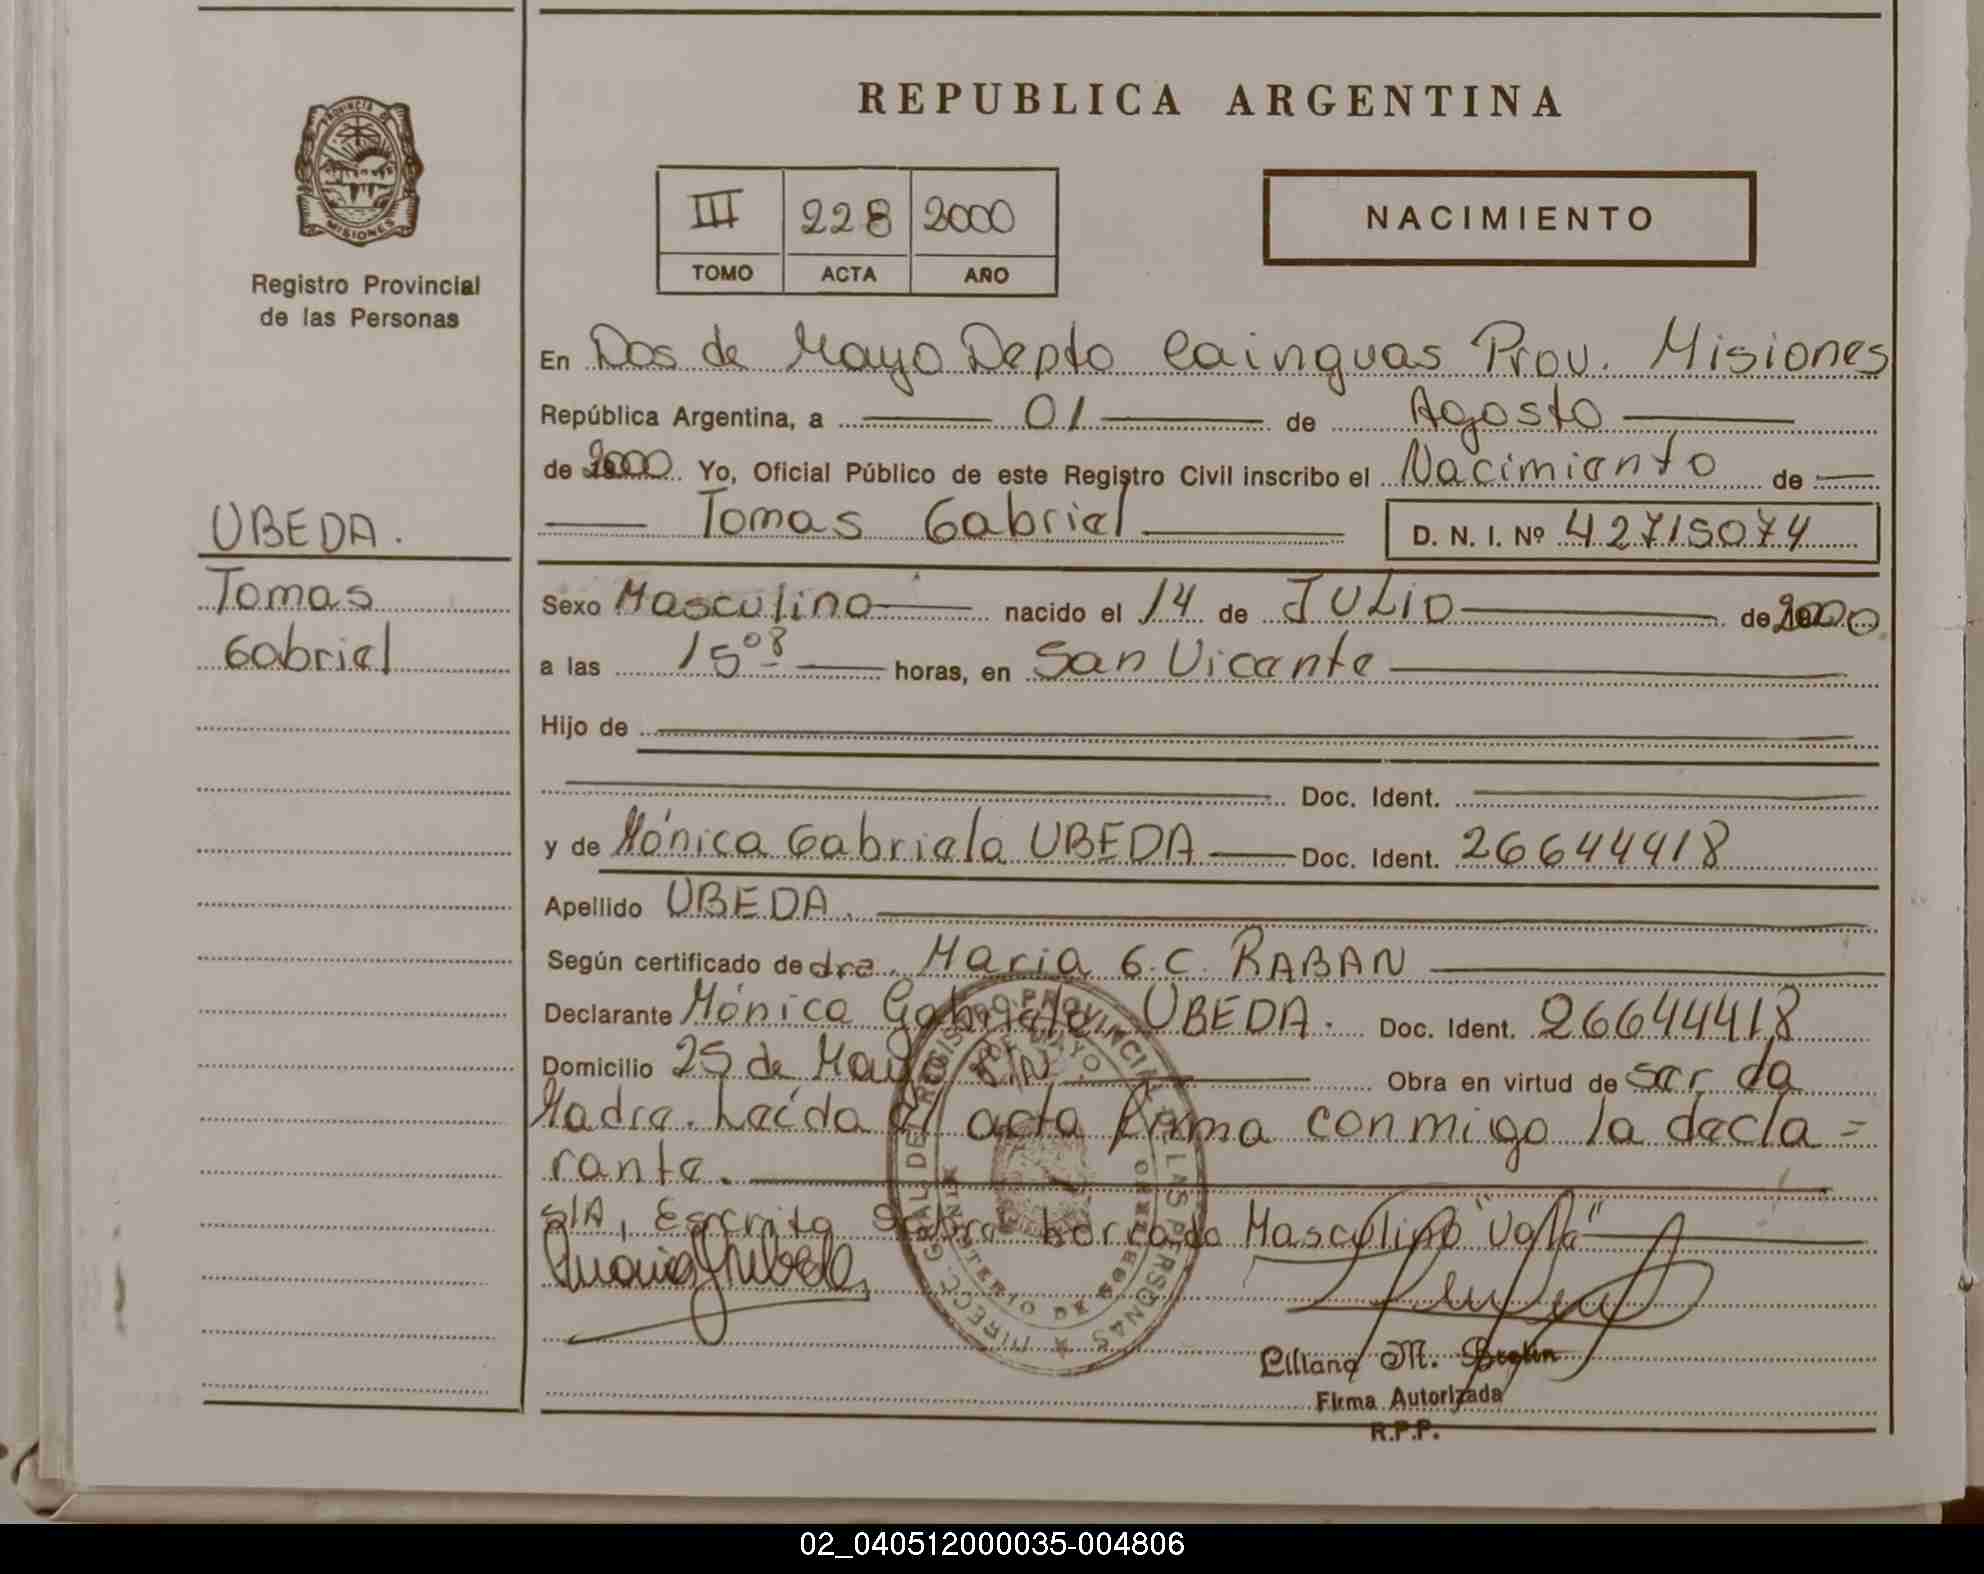 REPUBLICA ARGENTINA
PROVINCIA DE MISIONES
Registro Provincial
de las Personas
III 228 2000
TOMO ACTA AÑO
NACIMIENTO
UBEDA.
Tomas
Gabriel
En Dos de Mayo Depto Cainguas Prov. Misiones
República Argentina, a 01 de Agosto
de 2000 Yo, Oficial Público de este Registro Civil inscribo el Nacimiento de
Tomas Gabriel D. N. I. Nº 42715074
Sexo Masculino nacido el 14 de JULIO de 2000
a las 15 08 horas, en San Vicente
Hijo de
Doc. Ident.
y de Mónica Gabriela UBEDA Doc. Ident. 26644418
Apellido UBEDA.
Según certificado de dra. Maria G.C. RABAN
Declarante Mónica Gabriela UBEDA. Doc. Ident. 26644418
Domicilio 25 de Mayo S/N Obra en virtud de ser da
Madre. Leída el acta firma conmigo la decla=
rante.
S/A, Escrito sobre borrado Masculino "Vale"
DIRECC. GRAL DEL REGISTRO PROVINCIAL DE LAS PERSONAS
MINISTERIO DE GOBIERNO
DOS DE MAYO
Liliana M.
Firma Autorizada
R.P.P.
02_040512000035-004806